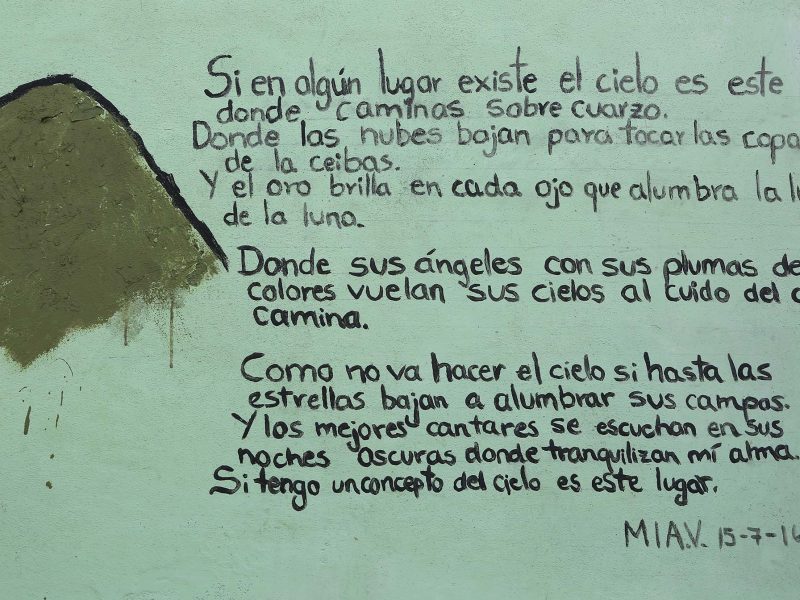 Si en algún lugar existe el cielo es este
donde caminas sobre cuarzo.
Donde las nubes bajan para tocar las copa
de la ceibas.
Y el oro brilla en cada ojo que alumbra la lu
de la luna.
Donde sus ángeles con sus plumas de
colores vuelan sus cielos al cuido del
camina.
Como no va hacer el cielo si hasta las
estrellas bajan a alumbrar sus campos.
Y los mejores cantares se escuchan en sus
noches oscuras donde tranquilizan mí alma.
Si tengo un concepto del cielo es este lugar.
MIA.V. 15-7-16